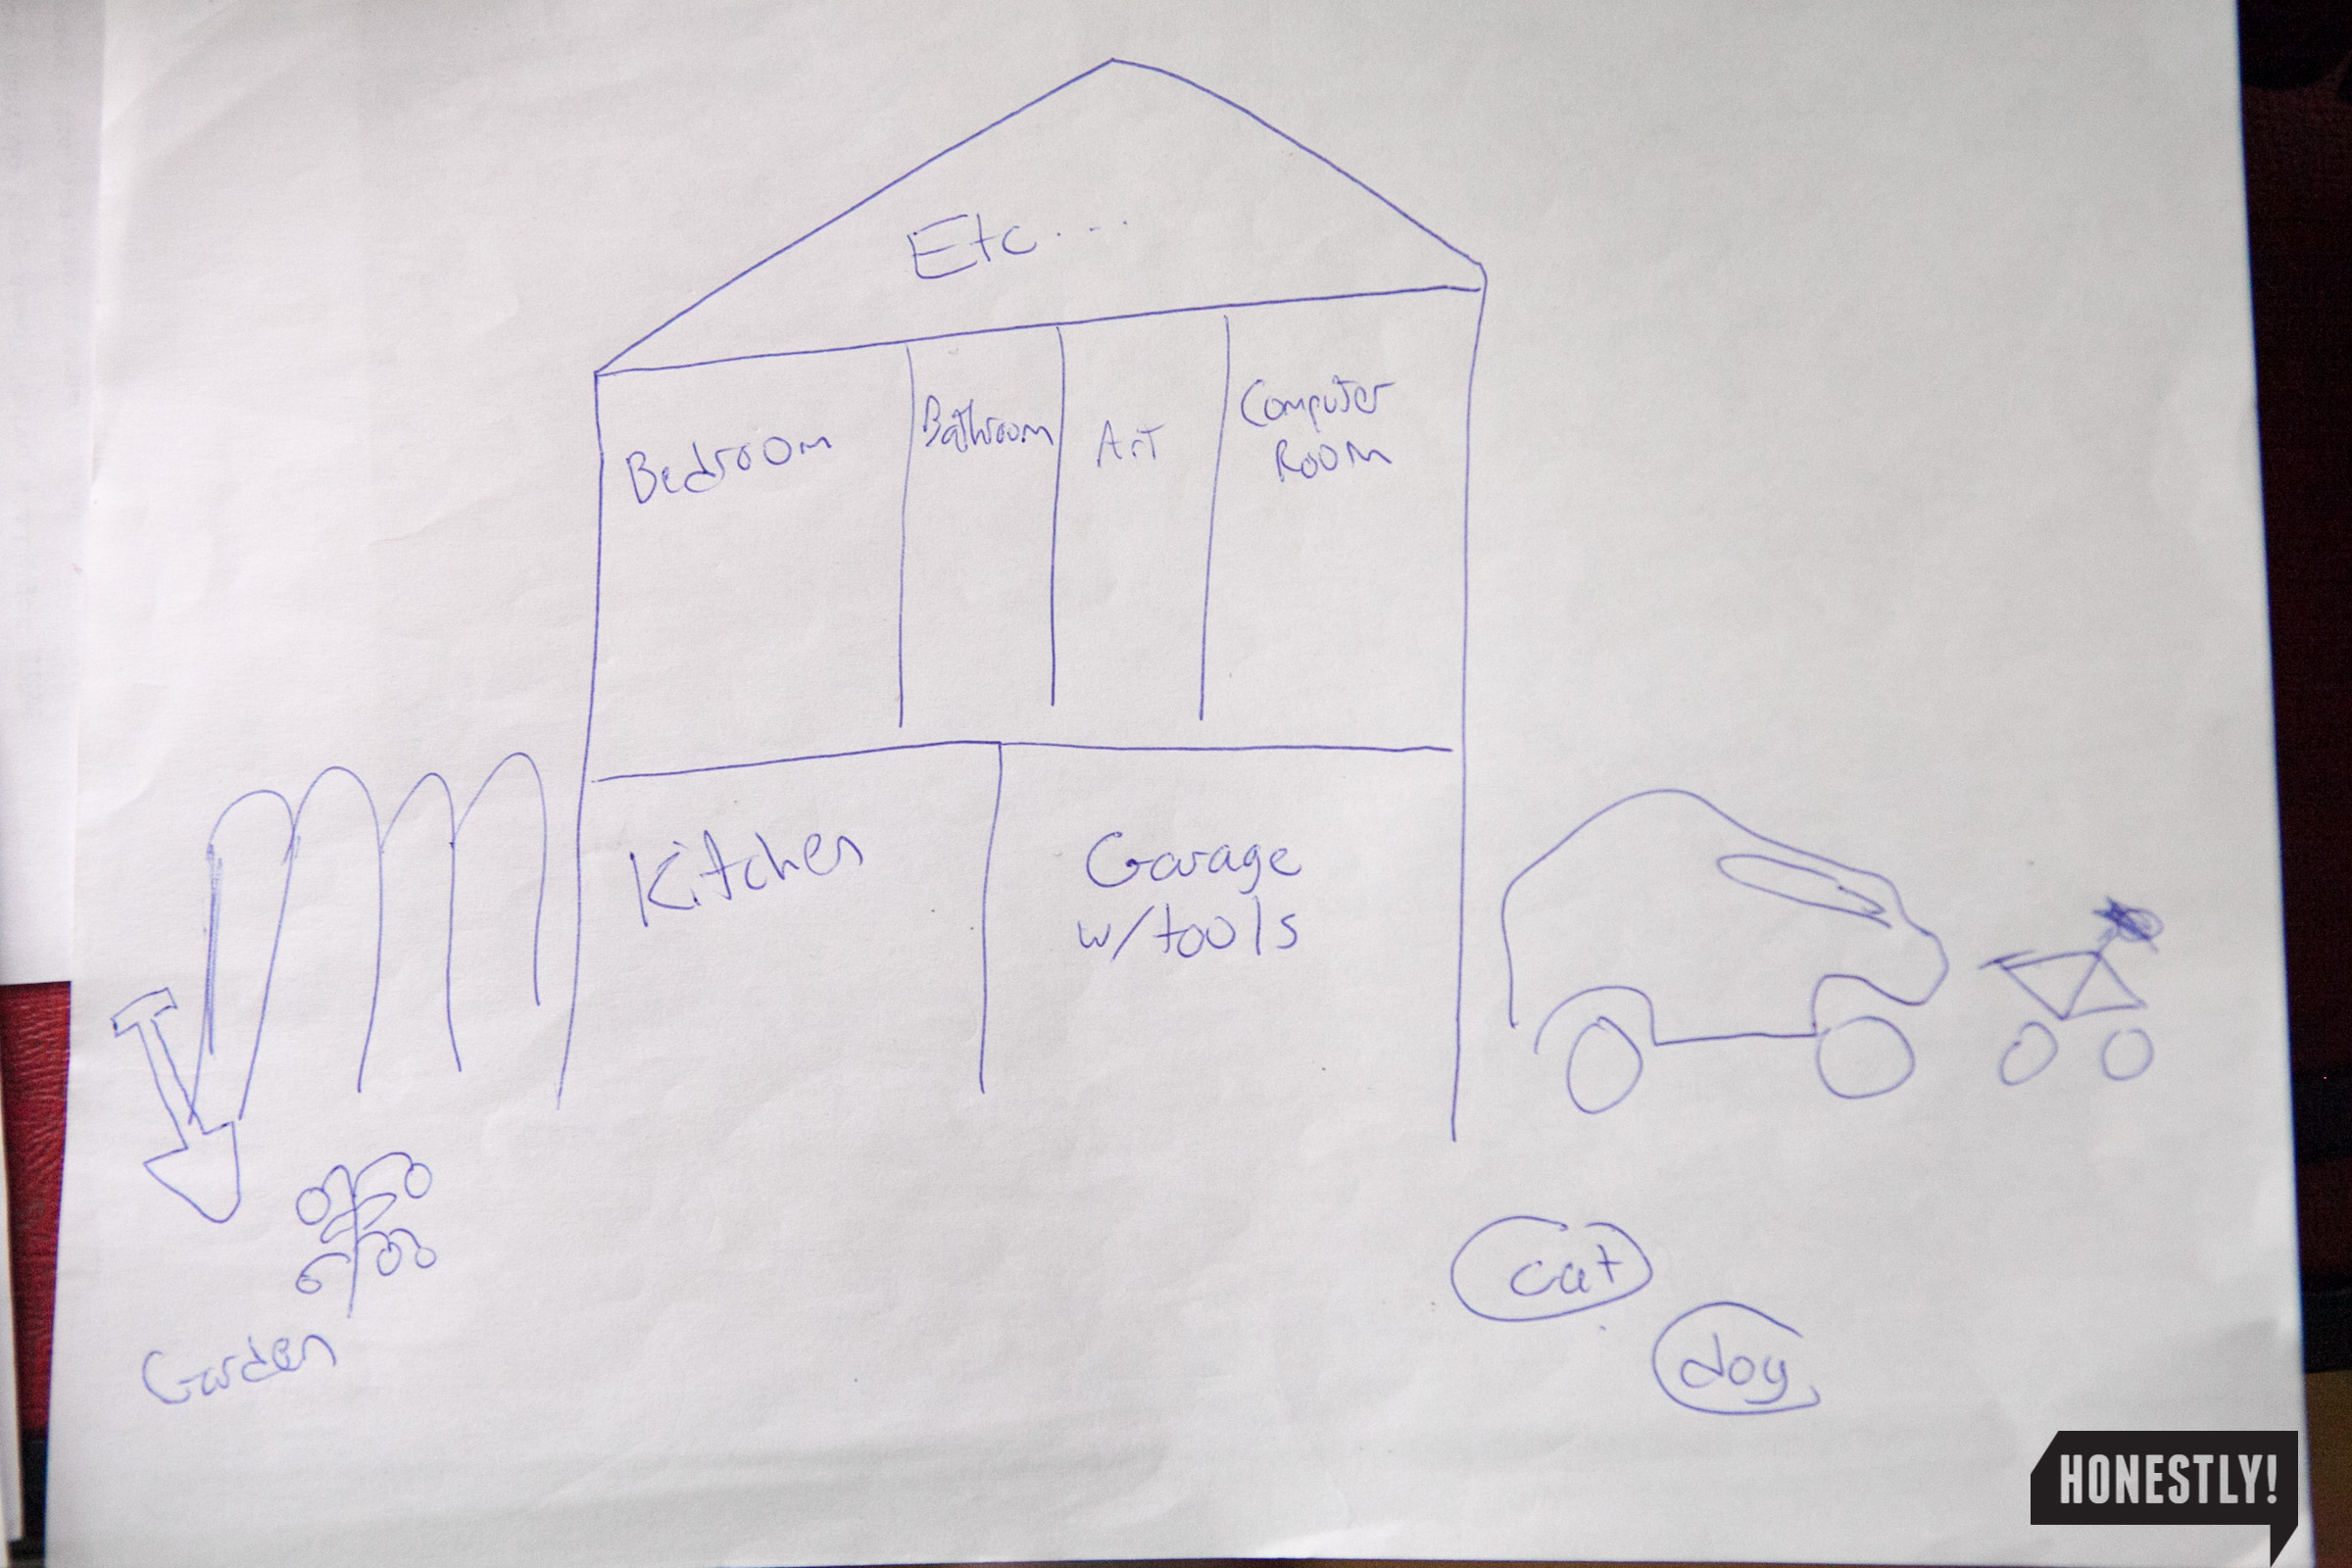 Etc....
Bedroom
Bathroom
Art
Computer
Room
Kitchen
Garage
w/tools
Garden
cat
dog
HONESTLY!